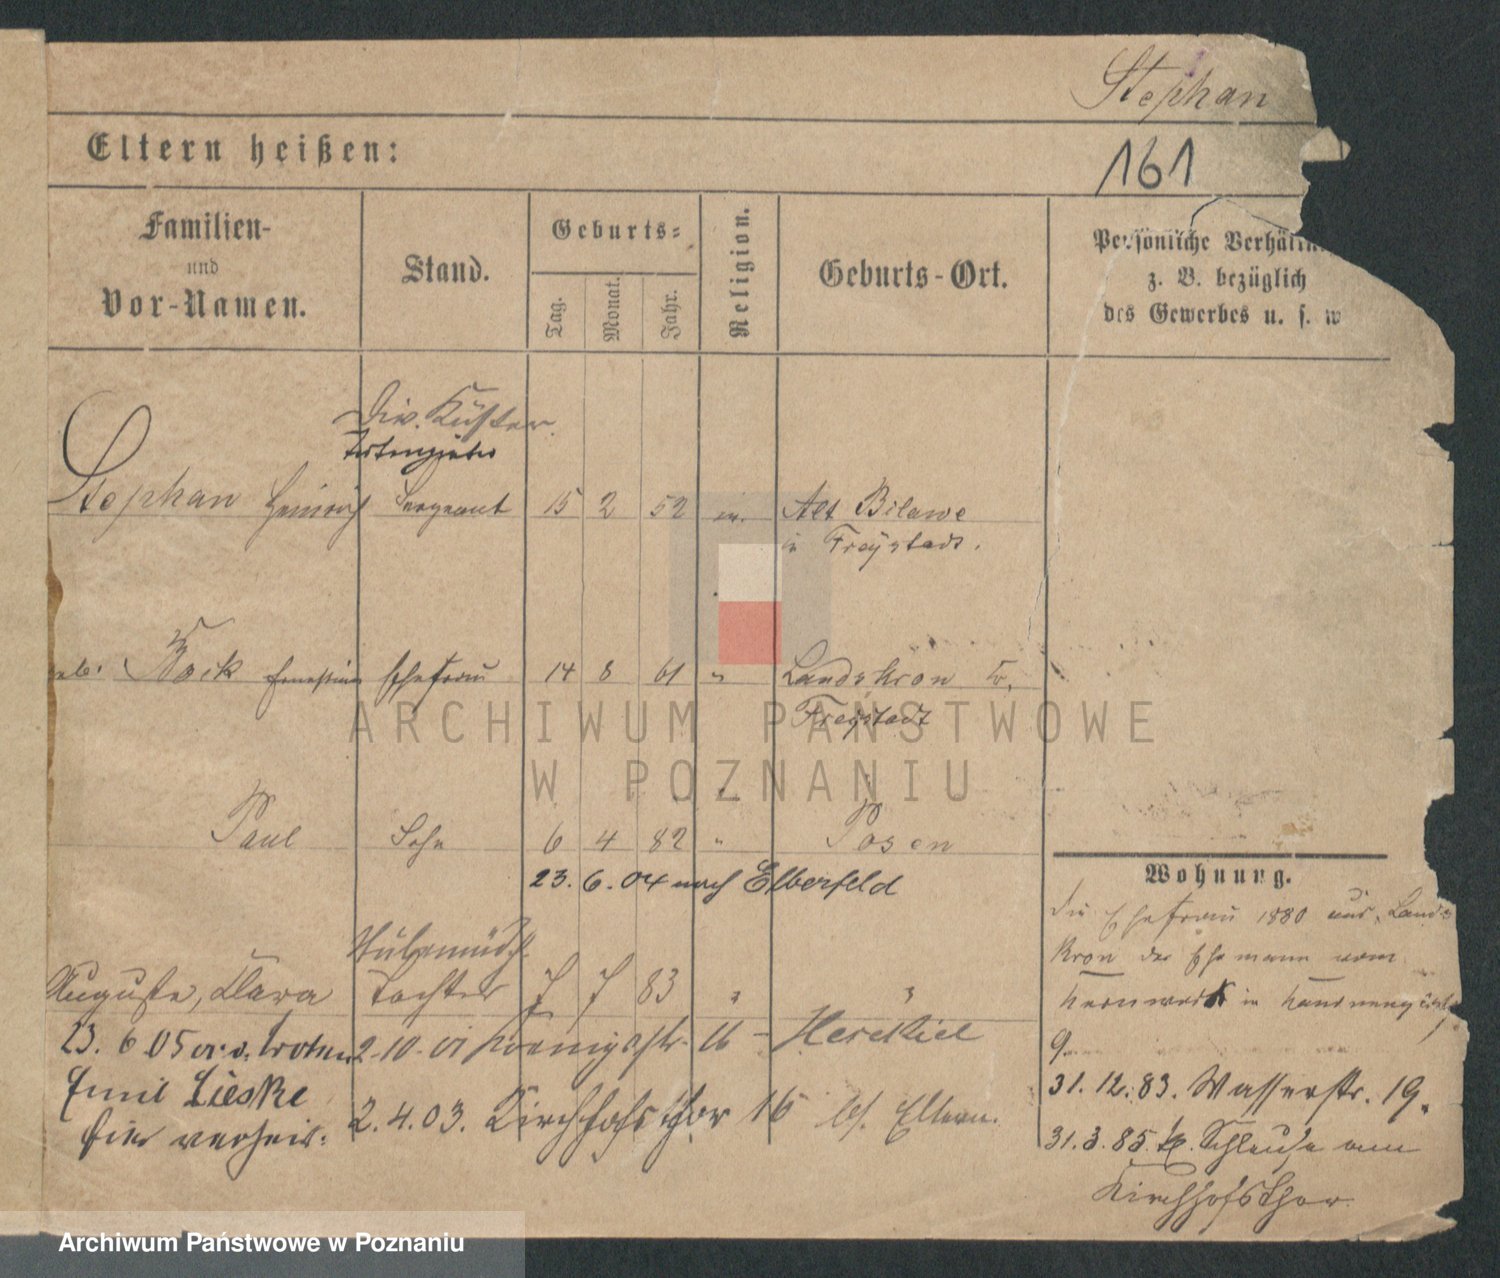 Stephan
Eltern heißen:
161
Familien-
und
Vor-Namen.
Stand.
Geburts-
Tag.
Monat.
Jahr.
Religion.
Geburts-Ort.
Persönliche
z. B. bezüglich
des Gewerbes u. s. w
Div. Küster.
Stephan Heinrich Sergeant 15 2 52 ev. Alt Bilawe
Freystadt.
geb. Ernestine Ehefrau 14 8 61 " Landskron Kr.
Freystadt
Paul Sohn 6 4 82 " Posen
23. 6. 04 nach Elberfeld
Wohnung.
Die Ehefrau 1880 aus Lands
kron der Ehemann vom
Kernwerk in
9.
Auguste, Clara Tochter 7 7 83 " "
23. 6 05
2-10-01 Koenigstr. 16 - Hesekiel
Emil Lieske
hier verheir.
2. 4. 03. Kirchhofsthor 16 bf. Eltern.
31. 12. 83. Wasserstr. 19.
31. 3. 85. Schleuse am
Kirchhofsthor
ARCHIWUM PAŃSTWOWE
W POZNANIU
Archiwum Państwowe w Poznaniu